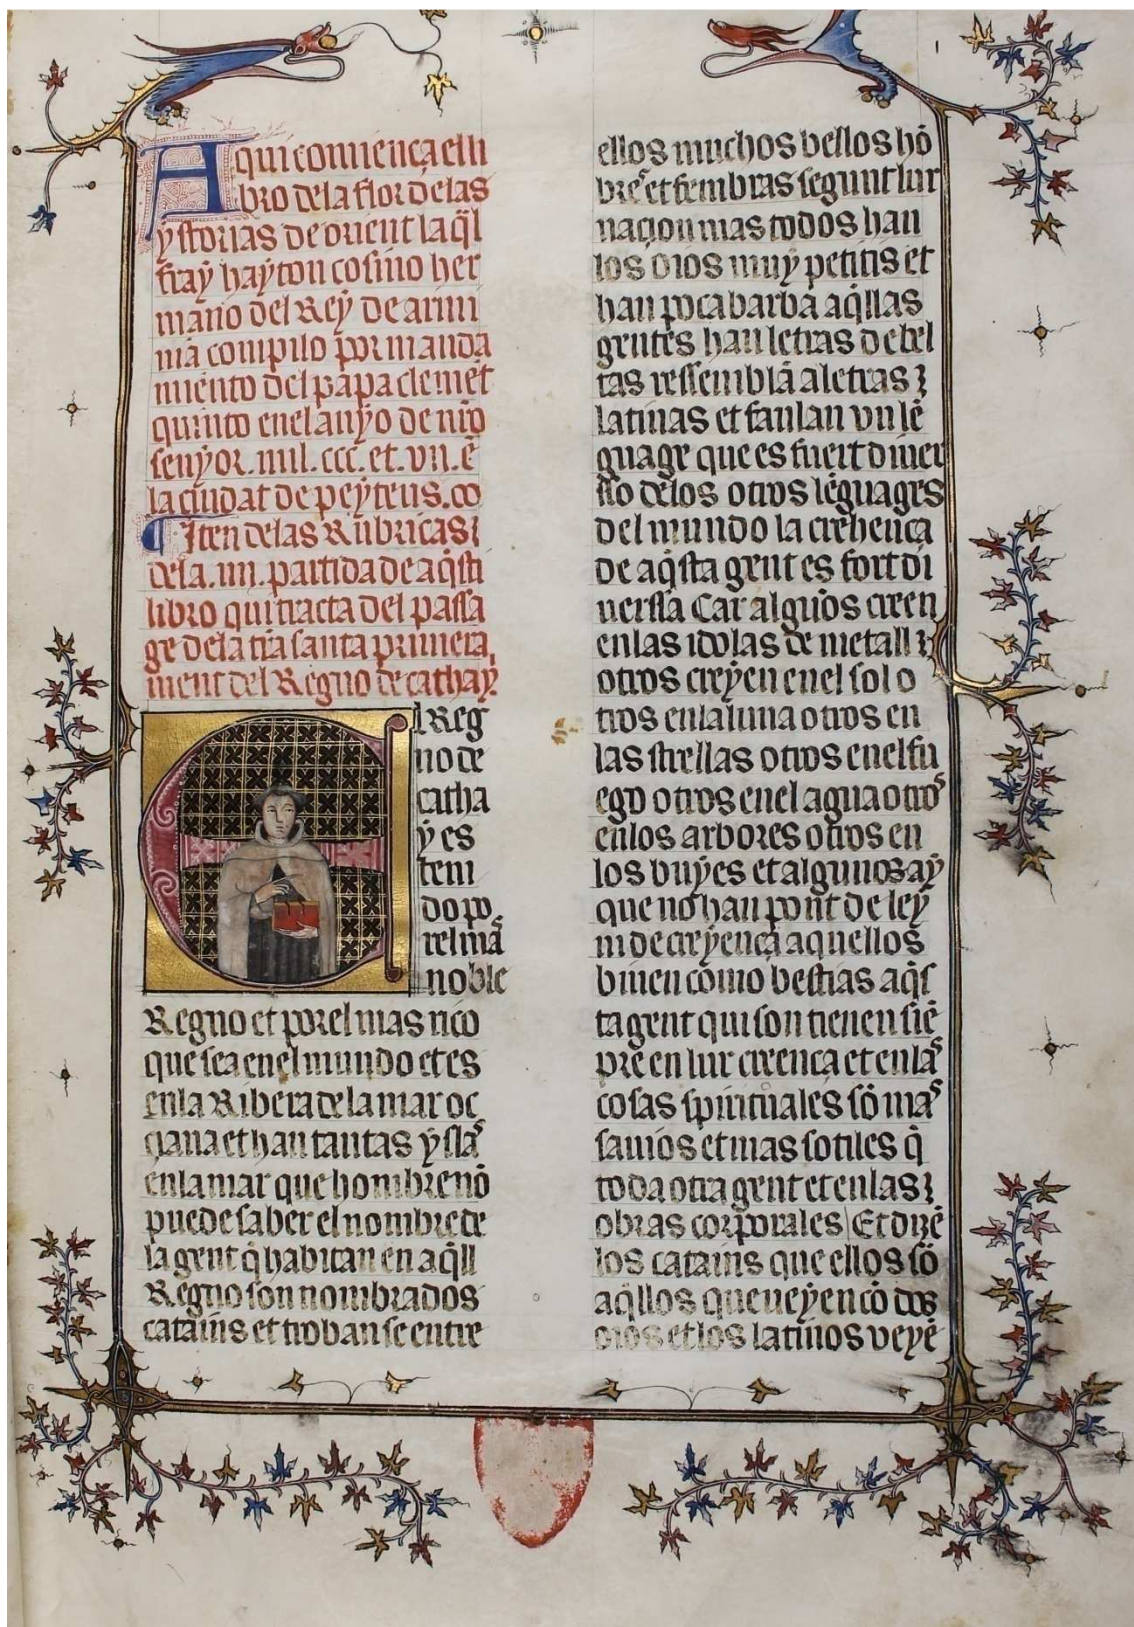 Aqui comiença el li
bro de la flor de las
ystorias de orient la q̃l
fray hayton cosino her
mano del Rey de armi
nia compilo por manda
miento del papa clemẽt
quinto en el anyo de nr̃o
senyor .mil.ccc.et.vii.ẽ
la ciudat de peyteus. co
¶ Iten de las Rubricas ꝛ
de la .iiii. partida de aq̃sti
libro qui tracta del passa
ge de la tr̃a santa primera
ment del Regno de cathay.
El Reg
no de
catha
y es
teni
do po
r el mas
noble
Regno et por el mas rico
que sea en el mundo et es
en la Ribera de la mar oc
çiana et han tantas yslas
en la mar que hombre nõ
puede saber el nombre de
la gent q̃ habitan en aq̃ll
Regno son nombrados
catains et troban se entre
ellos muchos bellos hõ
bres et fembras segunt lur
naçion mas todos han
los oios muy petitis et
han poca barba aq̃llas
gentes han letras de bel
tas ressemblã a letras ꝛ
latinas et faulan vn lẽ
guage que es fuert diuer
sso de los otros lẽguages
del mundo la crehença
de aq̃sta gent es fort di
uerssa Car algũos creen
en las idolas de metall ꝛ
otros creyen en el sol o
tros en la luna otros en
las strellas otros en el fu
ego otros en el agua otros
en los arbores otros en
los buyes et algunos ay
que no han pont de ley
ni de creyença aquellos
biuen como bestias aq̃s
ta gent qui son tienen siẽ
pre en lur creença et en las
cosas spirituales sõ mas
sauios et mas sotiles q̃
toda otra gent et en las ꝛ
obras corporales Et dizẽ
los catains que ellos sõ
aq̃llos que ueyen cõ dos
oios et los latinos veyẽ